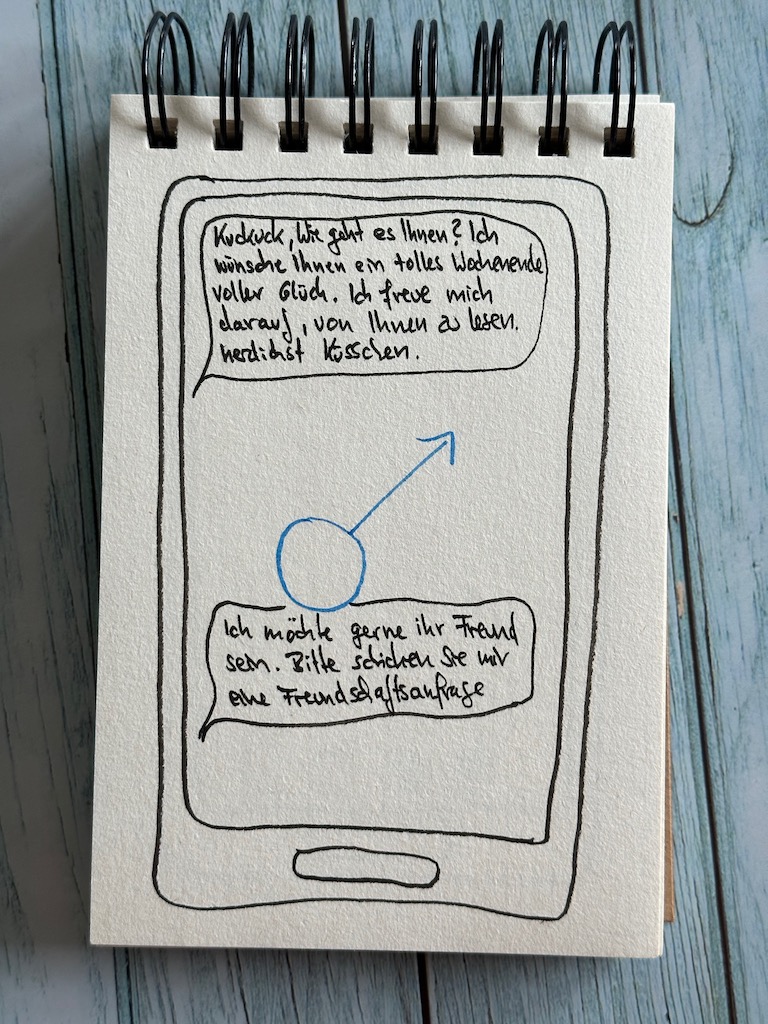 Kuckuck, Wie geht es Ihnen? Ich
wünsche Ihnen ein tolles Wochenende
voller Glück. Ich freue mich
darauf, von Ihnen zu lesen.
herzlichst Küsschen.
Ich möchte gerne ihr Freund
sein. Bitte schicken Sie mir
eine Freundschaftsanfrage